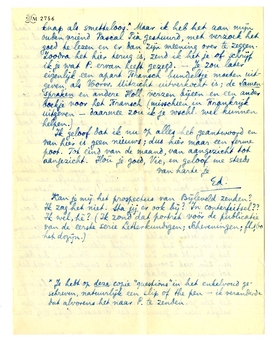 knap als smetteloos! Maar ik heb het aan mijn
vriend Pascal Pia gestuurd, met verzoek het
goed te lezen en er dan zijn meening over te zeggen.
Zoodra het hier terug is, zend ik het je of schrijf
ik je wat P. ervan heeft gezegd. – Je zou later
eigenlijk een apart Fransch bundeltje moeten uit-
geven, als Voorn. uitverkocht is; de samen-
spraken en andere Holl. verzen bijeen en een ander
boekje voor het Fransch (misschien in Frankrijk
uitgeven – daarmee zou ik je wschl. wel kunnen
helpen.)
Ik geloof dat ik nu op alles heb geantwoord en
van hier is geen nieuws; dus hier maar een ferme
poot. Tot eind van de maand, van aangezicht tot
aangezicht. Hou je goed, Vic, en geloof me steeds
van harte je
Ed.
Kan je mij het prospectus van Bijleveld zenden?
Ik zag het niet. Sta jij er ook bij? In conterfeitsel??
Ik wel, hè? (Ik zond dat portret vóór de publicatie
van de eerste serie
het dezijn.)
Ik heb op deze copie "questions" in het enkelvoud ge-
schreven, natuurlijk een slip of the pen – ik veranderde
dat alvorens het naar P. te zenden.